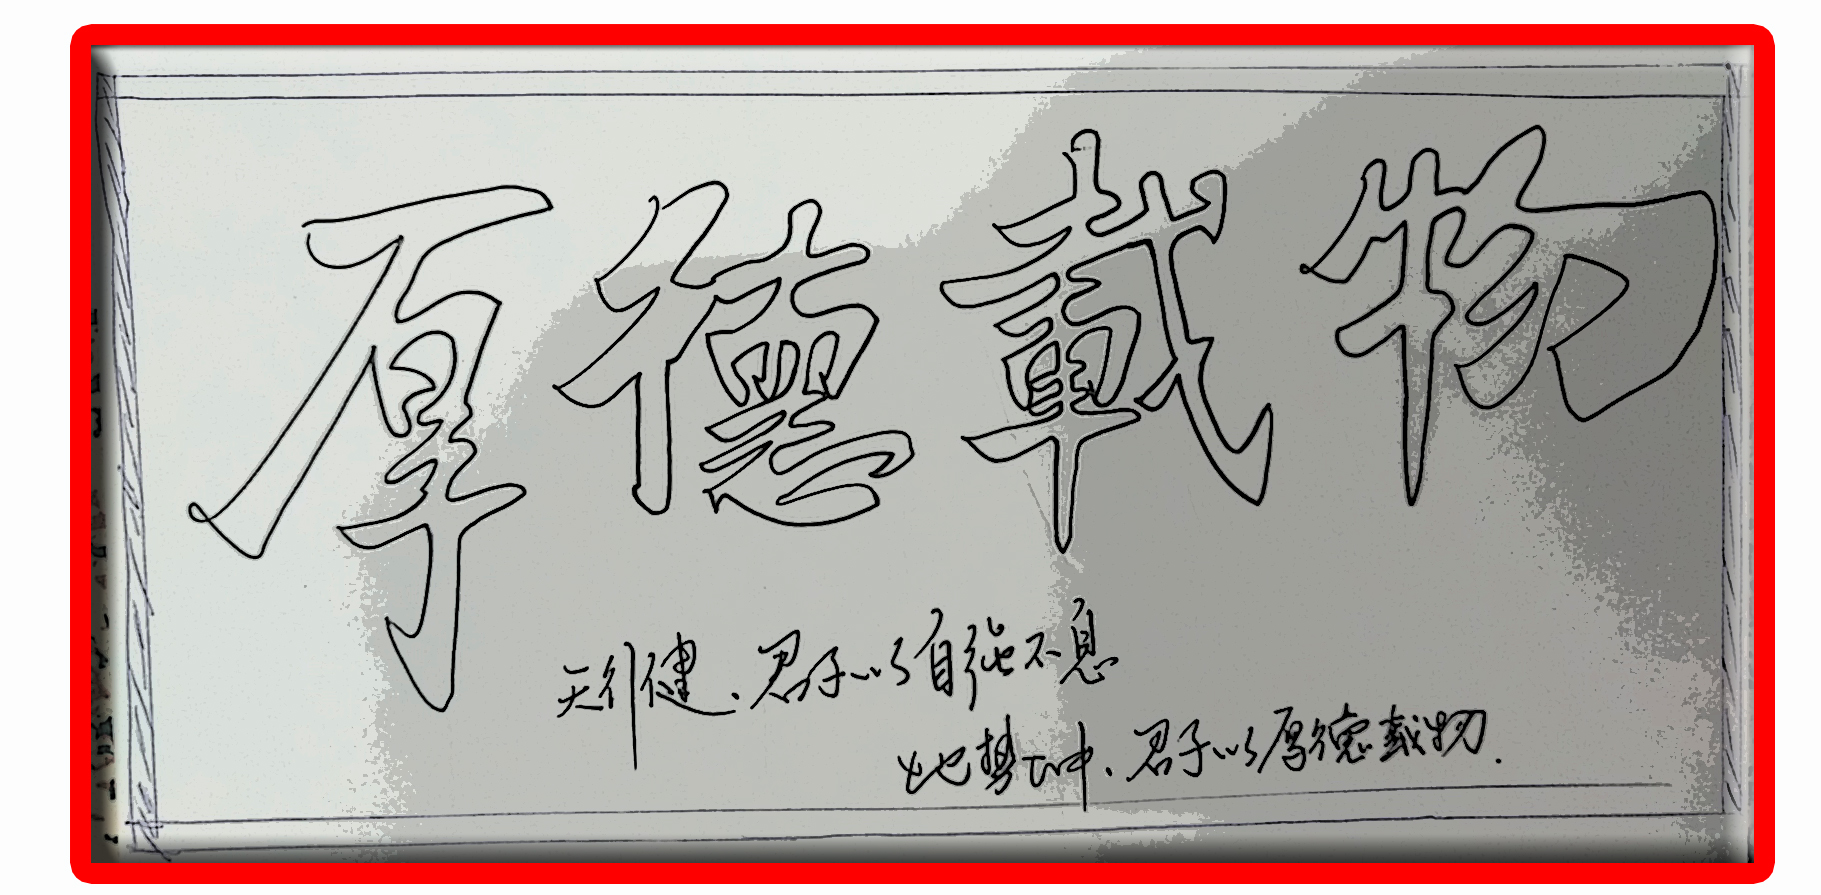 厚德载物
天行健、君子以自强不息
地势坤、君子以厚德载物.